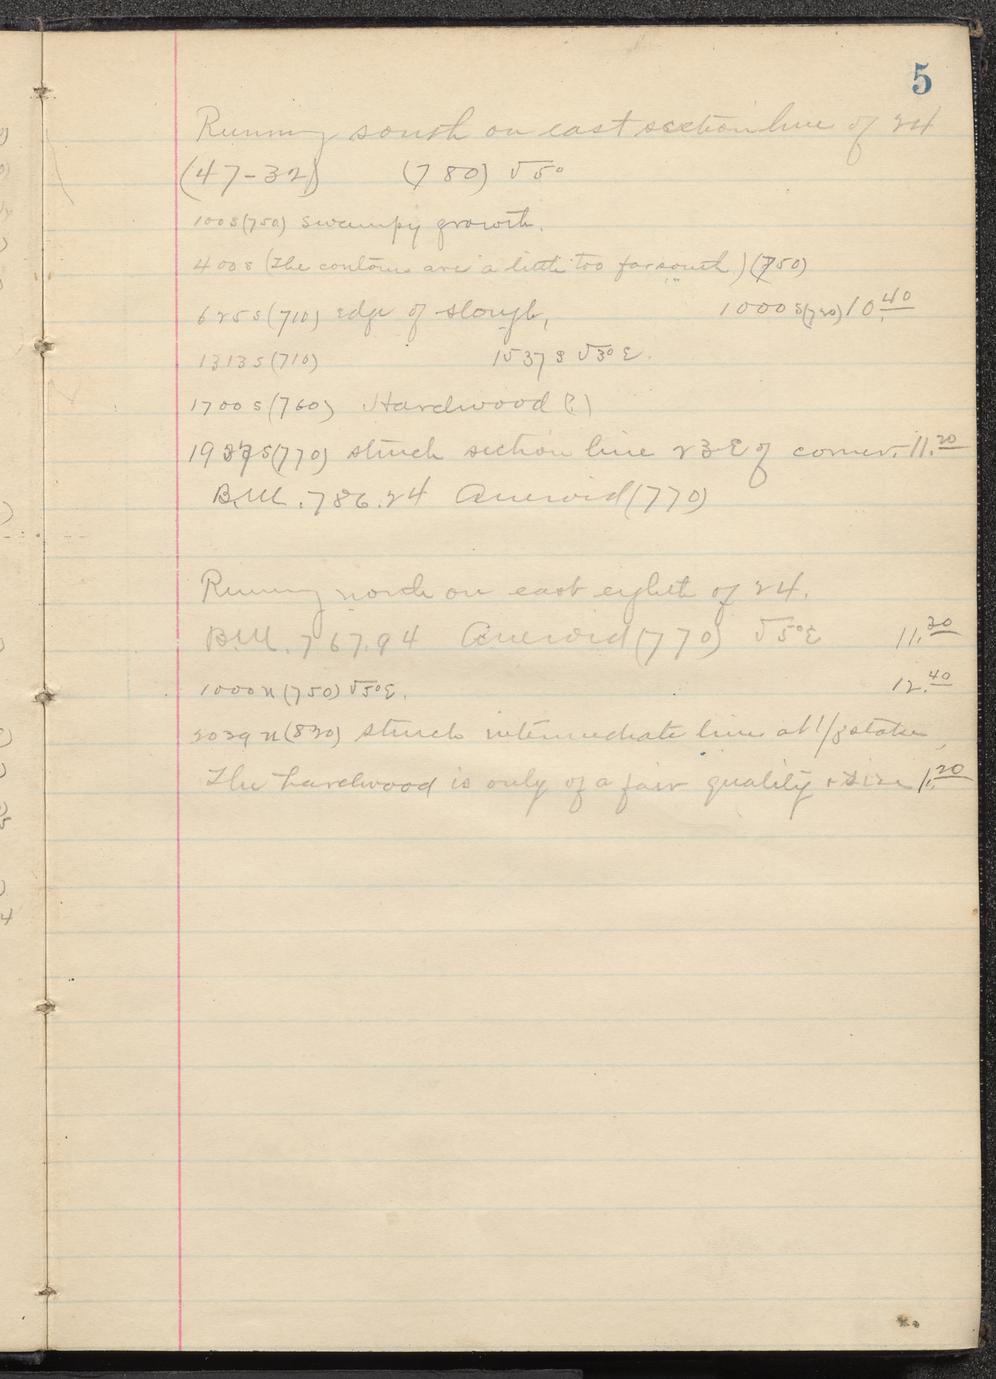 5
Running south on east section line of 24
(47-32) (780) √5°
100 S (750) swampy growth.
400 S (The contours are a little too far south) (750)
625 S (710) edge of slough, 1000 S (720) 10.40
1313 S (710) 1537 S √3° E.
1700 S (760) Hardwood (?)
19 S (770) struck section line 23 E of corner. 11.20
B.M. 786.24 Aneroid (770)
Running north on east eighth of 24.
B.M. 767.94 Aneroid (770) √5° E 11.30
1000 N (750) √5° E. 12.40
2029 N (820) struck intermediate line at 1/8 stake,
The hardwood is only of a fair quality + size 1.20